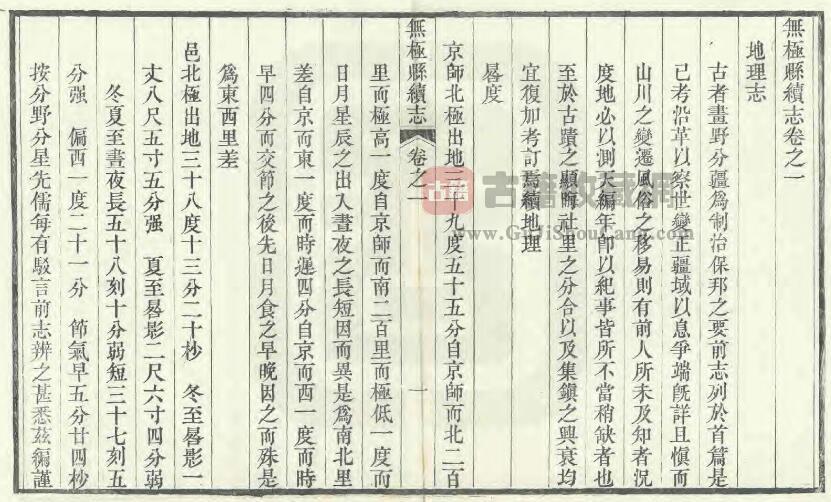 無極縣續志卷之一
地理志
古者畫野分疆爲制治保邦之要前志列於首篇是
已考沿革以察世變正疆域以息爭端旣詳且愼而
山川之變遷風俗之移易則有前人所未及知者況
度地必以測天編年卽以紀事皆所不當稍缺者也
至於古蹟之顯晦社里之分合以及集鎭之興衰均
宜復加考訂焉續地理
晷度
京師北極出地三十九度五十五分自京師而北二百
無極縣續志 卷之一 一
里而極高一度自京師而南二百里而極低一度而
日月星辰之出入晝夜之長短因而異是爲南北里
差自京而東一度而時遲四分自京而西一度而時
早四分而交節之後先日月食之早晚因之而殊是
爲東西里差
邑北極出地三十八度十三分二十秒 冬至晷影一
丈八尺五寸五分强 夏至晷影二尺六寸四分弱
冬夏至晝夜長五十八刻十分弱短三十七刻五
分强 偏西一度二十一分 節氣早五分廿四秒
按分野分星先儒每有駁言前志辨之甚悉茲編謹
古籍 古籍收藏网
www.GuJiShouCang.com